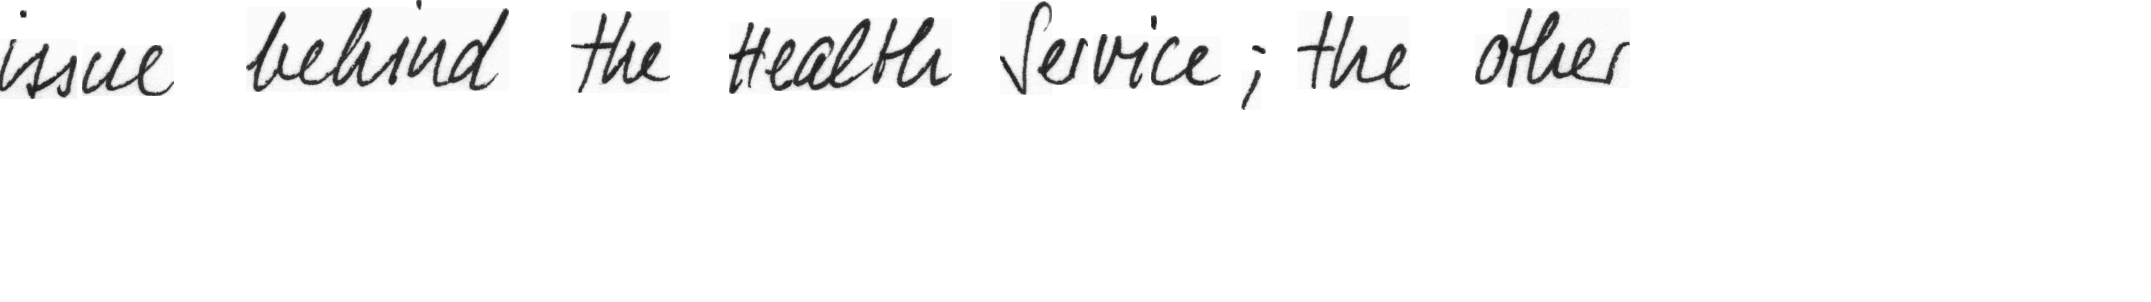 issue behind the Health Service; the other